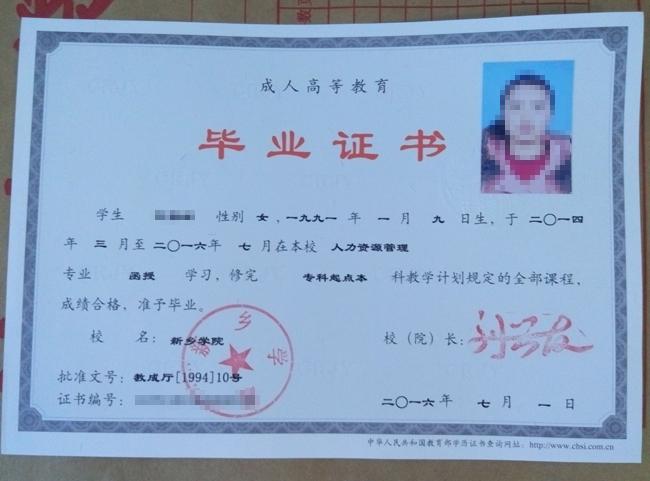 成人高等教育
毕业证书
学生 性别 女，一九九一 年 一 月 九 日生，于 二〇一四
年 三 月至 二〇一六年 七 月在本校 人力资源管理
专业 函授 学习，修完 专科起点本 科教学计划规定的全部课程，
成绩合格，准予毕业。
校 名：新乡学院 校（院）长：
批准文号：教成厅[1994]10号
证书编号： 二〇一六 年 七 月 一 日
中华人民共和国教育部学历证书查询网址：http://www.chsi.com.cn